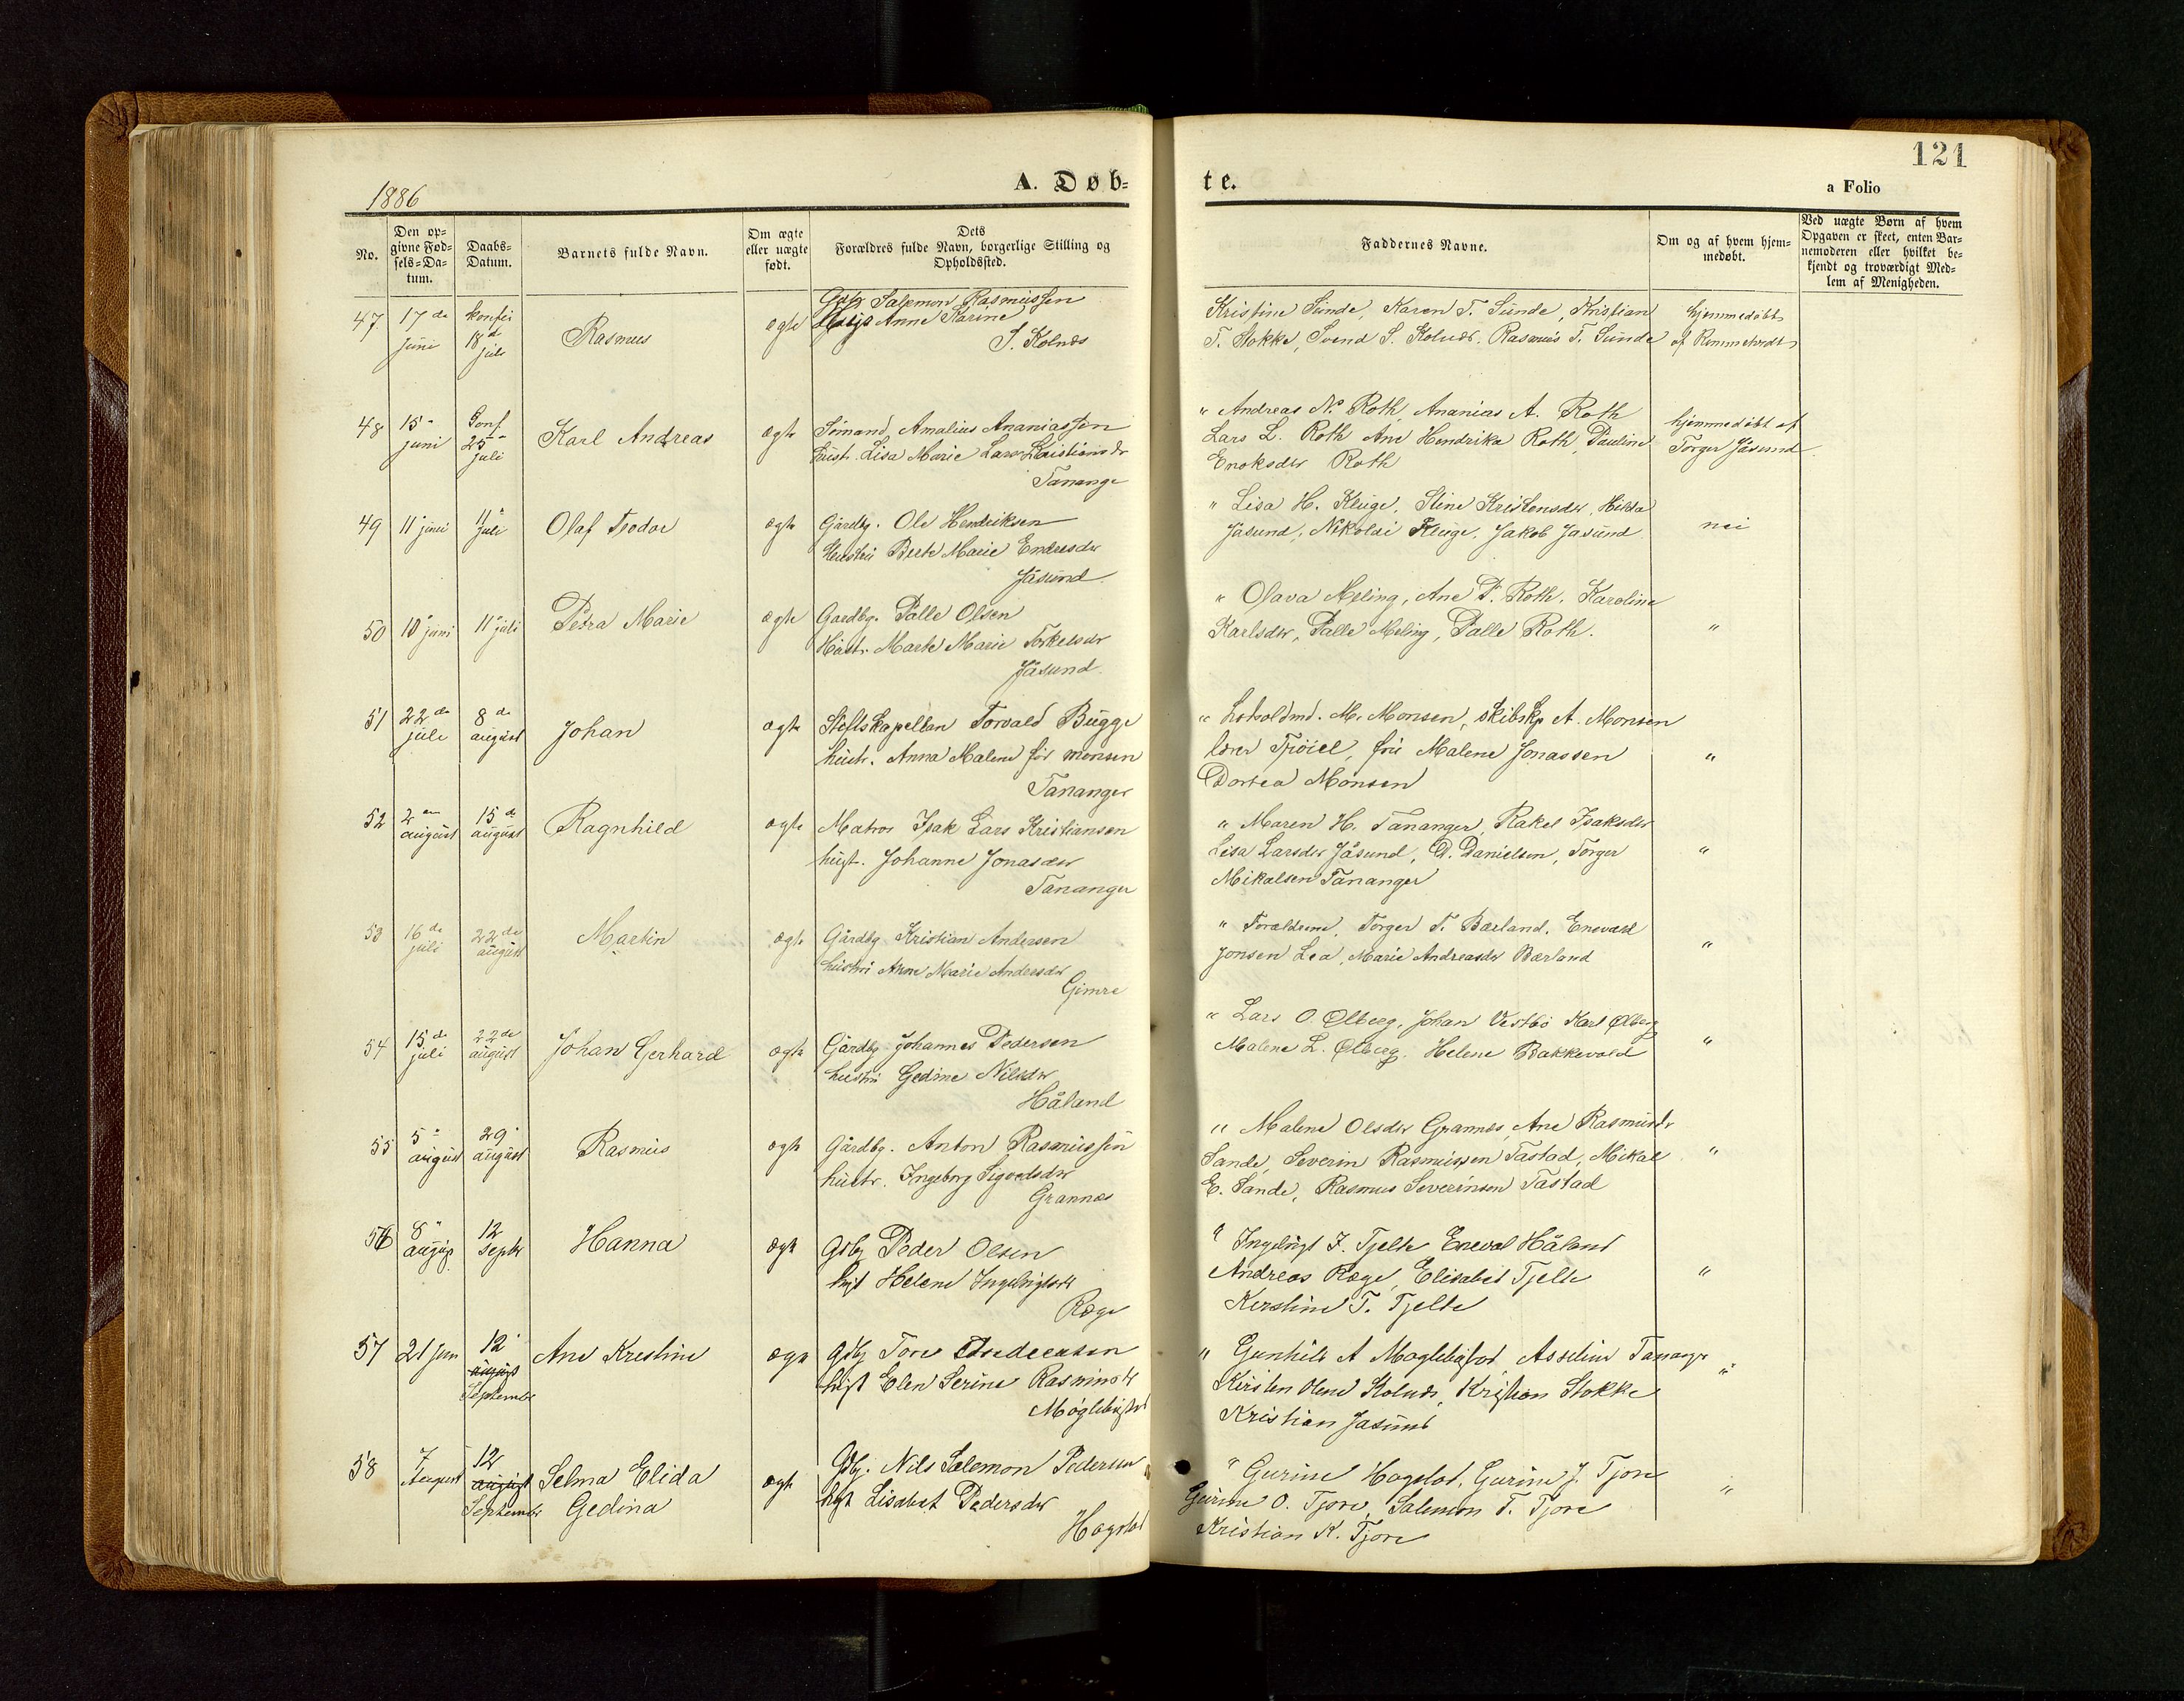 121
1886
A. Døb=
te.
a Folio
No.
Den op=
givne Fød=
sels=Da=
tum.
Daabs=
Datum.
Barnets fulde Navn.
Om ægte
eller uægte
født.
Dets
Forældres fulde Navn, borgerlige Stilling og
Opholdssted.
Faddernes Navne.
Om og af hvem hjem=
medøbt.
Ved uægte Børn af hvem
Opgaven er skeet, enten Bar=
nemoderen eller hvilket be=
kjendt og troværdigt Med=
lem af Menigheden.
47
17de
juni
18de
juli
Rasmus
ægte
Salemon Rasmussen
Anne Karine
S. Kolnes
Kristine Sunde, Karen T. Sunde, Kristian
T. Stokke, Svend S. Kolnes. Rasmus T. Sunde
hjemmedøbt
af
48
15
juni
Conf
25
juli
Karl Andreas
ægte
Sømand Amalius Ananiassen
hust. Lisa Marie Lars
Tanange
" Andreas N. Roth Ananias A. Roth
Lars L. Roth Ane Hendrika Roth, Pauline
Enoksdtr Roth
hjemmedøbt af
Torger Jåsund
49
11 juni
11
juli
Olaf Teodor
ægte
Gårdbg. Ole Hendriksen
Hustru Berte Marie Endresdtr
Jåsund
" Lisa H. Kluge, Stine Kristensdtr, Hilda
Jåsund, Nikolai Kluge, Jakob Jasund
nei
50
10 juni
11 juli
Petra Marie
ægte
Gardbg. Palle Olsen
Hustr. Marte Marie Torkelsdtr
Jåsund
" Olava Meling, Ane P. Roth, Karoline
Karlsdtr, Palle Meling, Palle Roth.
"
51
22de
juli
8de
august
Johan
ægte
Stiftskapellan Torvald Bugge
hustr. Anna Malene før monsen
Tananger
" M. Monsen, skibskp A. Monsen
lærer fru Malene Jonassen
Dortea Monsen
"
52
2en
august
15de
august
Ragnhild
ægte
Matros Isak Lars Kristiansen
hust. Johanne Jonasdtr
Tananger
" Maren H. Tananger, Rakel Isaksdtr
Lisa Larsdtr Jåsund, D. Danielsen, Torger
Mikalsen Tananger
"
53
16de
juli
22de
august
Martin
ægte
Gårdbg Kristian Andersen
hustru Anne Marie Andersdtr
Gimre
" Forældrene, Torger T. Bærland, Enevald
Jonsen Lea, Marie Andreasdtr Bærland
"
54
15de
juli
22de
august
Johan Gerhard
ægte
Gårdbg Johannes Pedersen
hustru Gedine Nilsdtr
Håland
" Lars O. Ølberg, Johan Vestbø Karl Ølberg
Malene L. Ølberg, Helene Bakkevold
"
55
5
august
29
august
Rasmus
ægte
Gårdbg. Anton Rasmussen
hustr. Ingeborg Sigvedsdtr
Grannes
" Malene Olsdtr Grannes, Ane Rasmusdtr
Sande, Severin Rasmussen Tastad, Mikal
E. Sande, Rasmus Severinsen Tastad
"
56
8
august
12
septbr
Hanna
ægte
Gdbg Peder Olsen
hust Helene
Ræge
" I. Tjelte Eneval Håland
Andreas Ræge, Elisabet Tjelte
Kerstine T. Tjelte
"
57
21 juni
12
august
September
Ane Krestine
ægte
Gdbg Tore
hust Elen Serine Rasmusdtr
" Gunhild A Assiline Tananger
Kirsten Olene Kolnes, Kristian Stokke
Kristian Jasund
"
58
7
August
12
august
September
Selma Elida
Gedina
ægte
Gdbg. Nils Salemon Pedersen
hust Lisabet Pedersdtr
Hagstad
" Gurine Hagstad, Gurine J. Tjore
Gurine O. Tjore, Salemon T. Tjore
Kristian K. Tjore
"